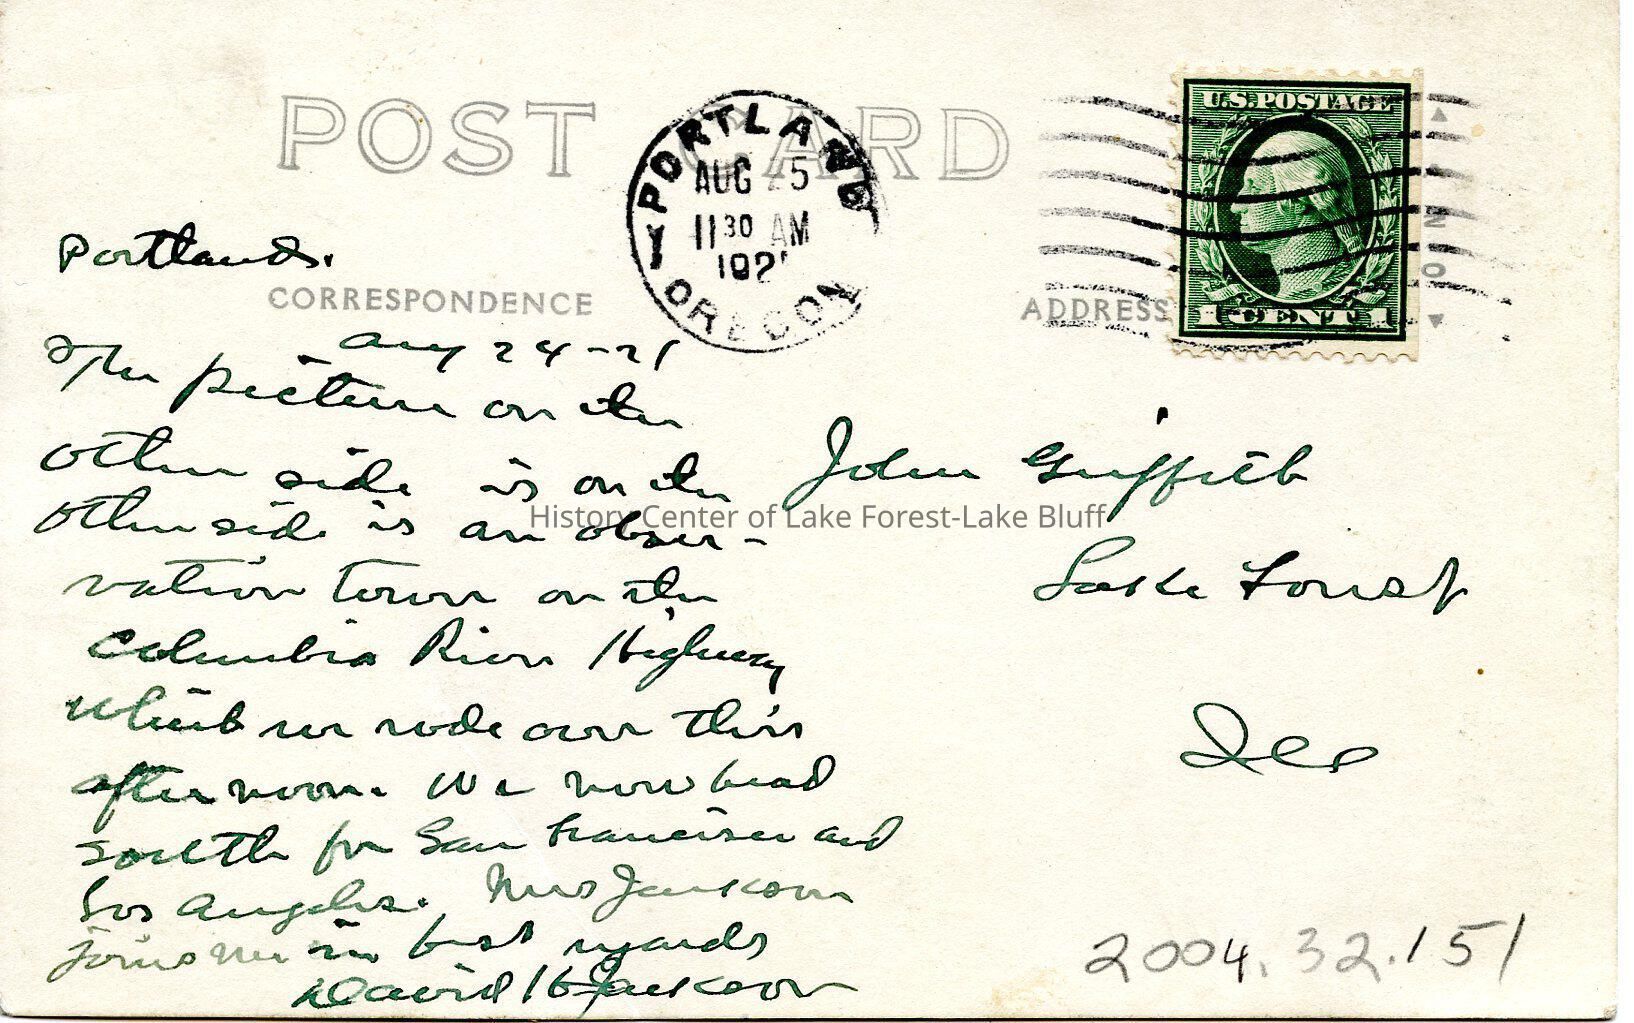 POST CARD
PORTLAND
AUG 25
11 30 AM
192
OREGON
U.S. POSTAGE
1 CENT 1
Portland.
CORRESPONDENCE
ADDRESS
Aug 24-21
The picture on the
other side is on the
other side is an obser-
vation tower on the
Columbia River Highway
which we rode over this
afternoon. We now head
south for San Francisco and
Los Angeles. Mrs Jackson
joins me in best regards
David H Jackson
John Griffith
Lake Forest
Ills
History Center of Lake Forest-Lake Bluff
2004.32.151